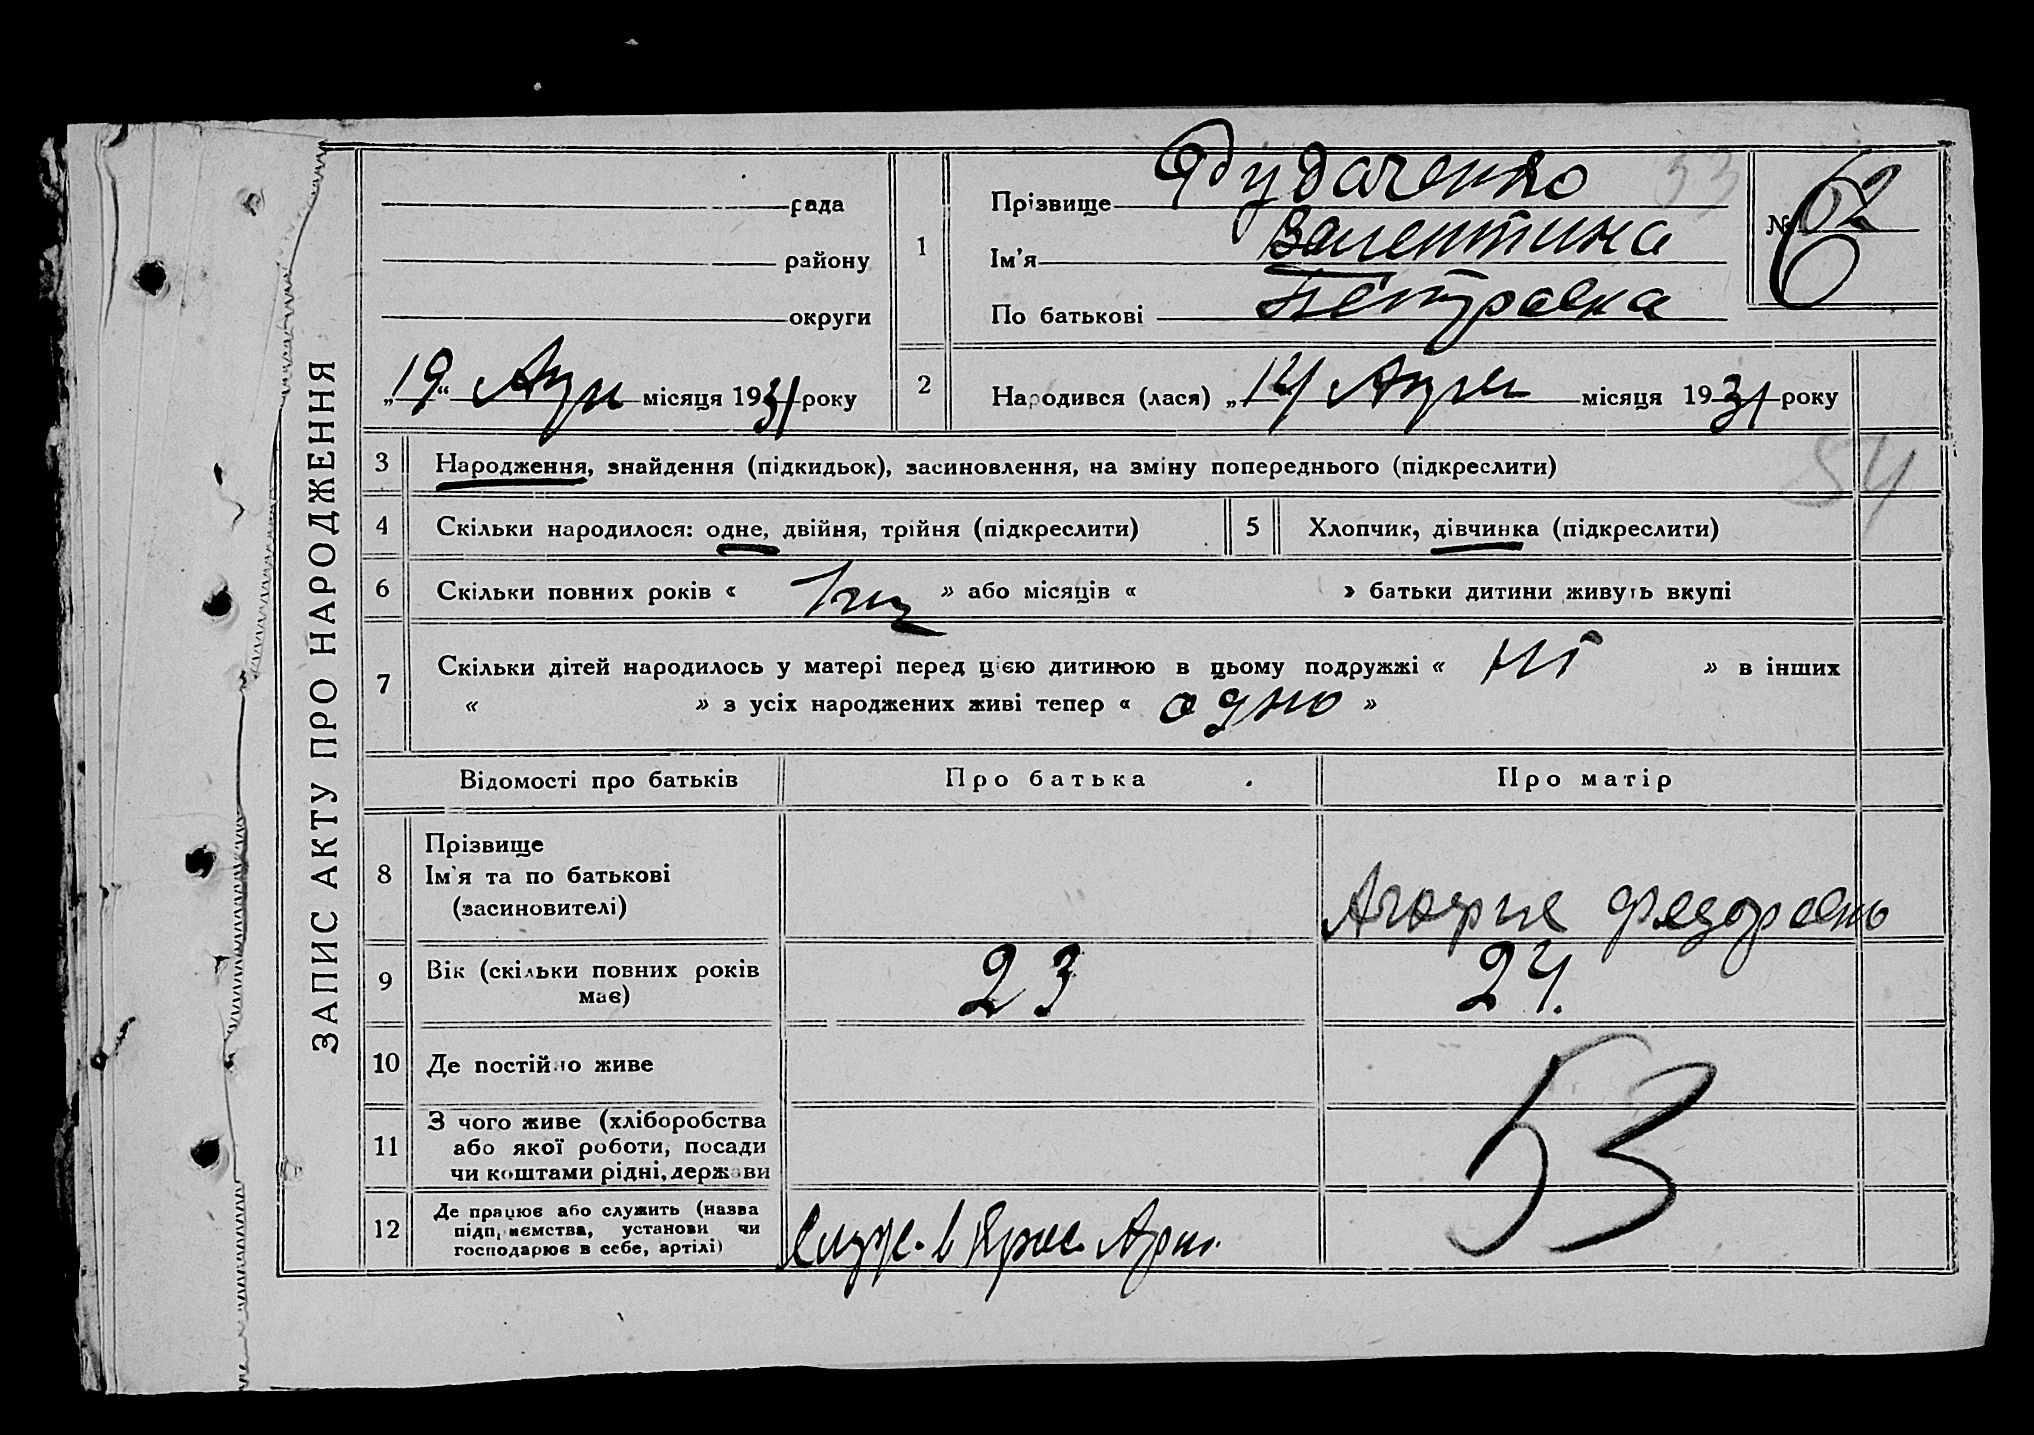 ЗАПИС АКТУ ПРО НАРОДЖЕННЯ
рада
району
округи
„19“ Апр місяця 1931 року
1
Прізвище Фудаченко
Ім'я Валентина
По батькові Петровна
53
№ 62
2 Народився (лася) „14 Апрел місяця 1931 року
3 Народження, знайдення (підкидьок), засиновлення, на зміну попереднього (підкреслити)
54
4 Скільки народилося: одне, двійня, трійня (підкреслити)
5 Хлопчик, дівчинка (підкреслити)
6 Скільки повних років « » або місяців « » батьки дитини живуть вкупі
7 Скільки дітей народилось у матері перед цією дитиною в цьому подружжі « ні » в інших
« » з усіх народжених живі тепер « одно »
Відомості про батьків Про батька Про матір
8 Прізвище
Ім'я та по батькові
(засиновителі)
Федоровно
9 Вік (скільки повних років
має)
23 24.
10 Де постійно живе
11 З чого живе (хліборобства
або якої роботи, посади
чи коштами рідні, держави
53
12 Де працює або служить (назва
підприємства, установи чи
господарює в себе, артілі)
Служ. в Крас. Арм.